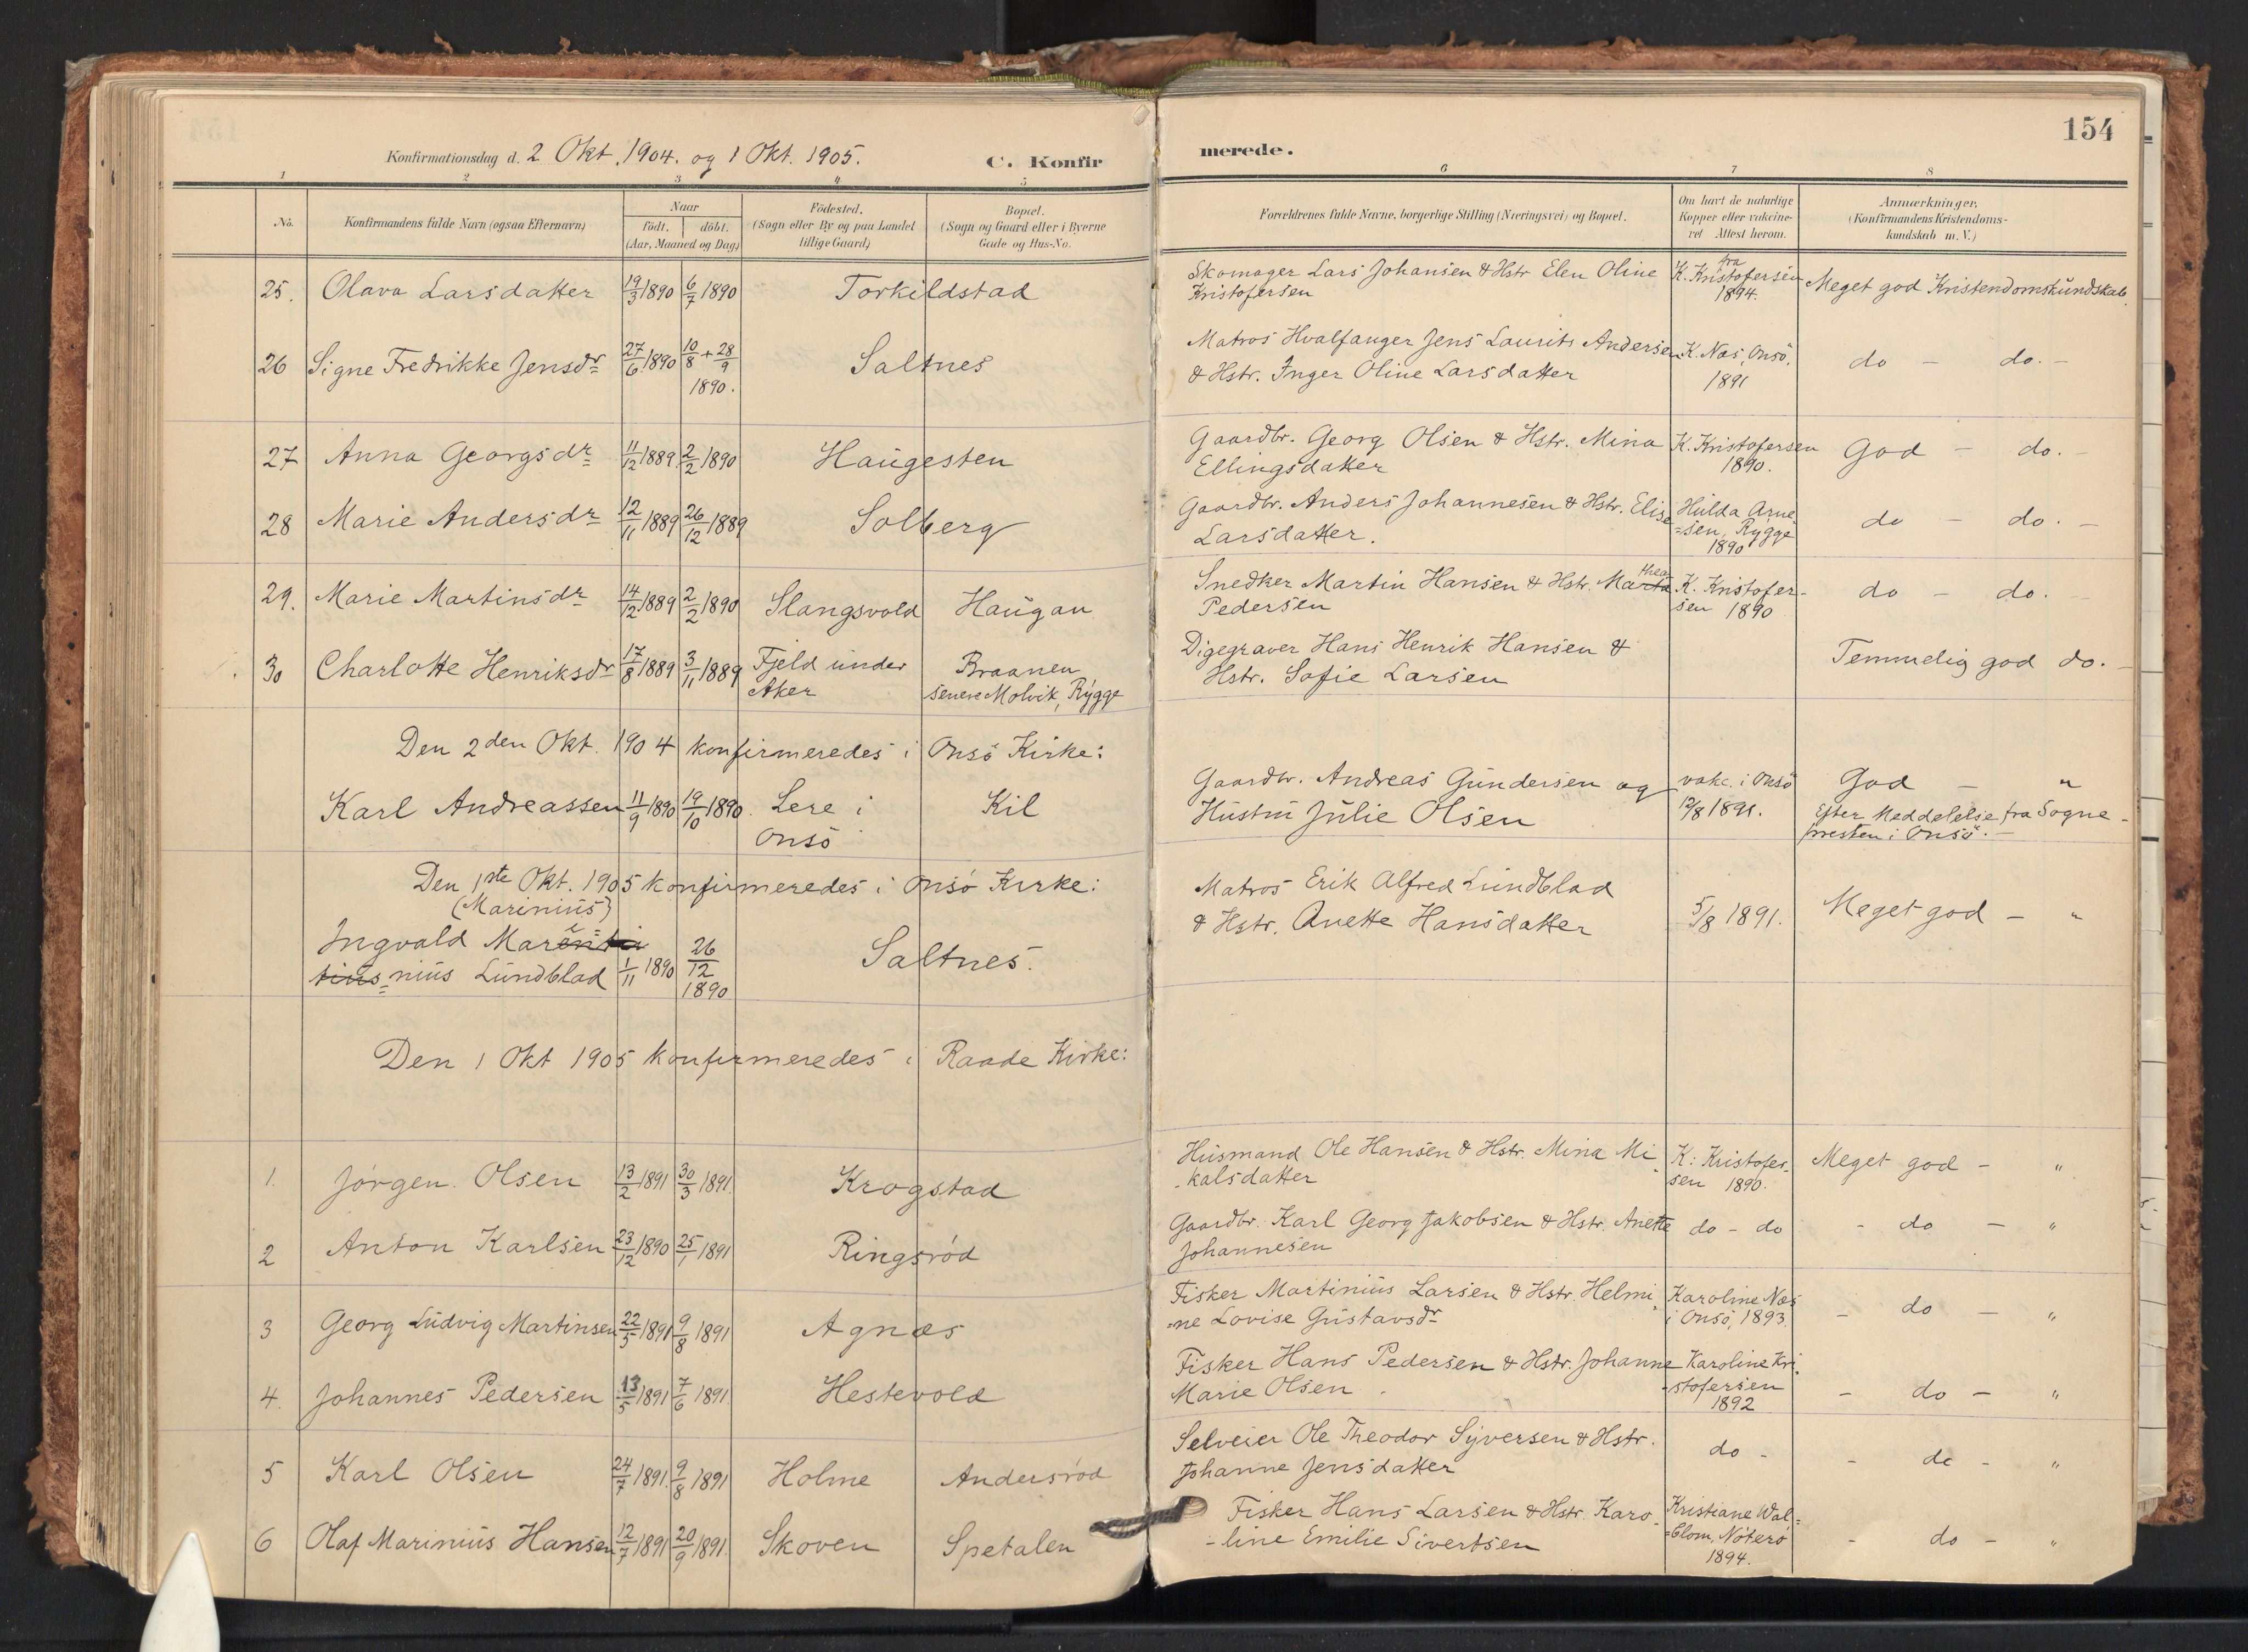 154
Konfirmationsdag d. 2 Okt. 1904. og 1 Okt. 1905.
C. Konfirmerede.
1 2 3 4 5 6 7 8
No.
Konfirmandens fulde Navn (ogsaa Efternavn)
Naar
født. døbt.
(Aar, Maaned og Dag)
Fødested.
(Sogn eller By og paa Landet
tillige Gaard)
Bopæl.
(Sogn og Gaard eller i Byerne
Gade og Hus-No.
Forældrenes fulde Navne, borgerlige Stilling (Næringsvei) og Bopæl.
Om havt de naturlige
Kopper eller vakcine-
ret Attest herom.
Anmærkninger.
(Konfirmandens Kristendoms-
kundskab m. V.)
25. Olava Larsdatter 19/3 1890 6/7 1890 Torkildstad
Skomager Lars Johansen & Hstr Elen Oline
Kristofersen
fra
K. Kristofersen
1894.
Meget god Kristendomskundskab.
26 Signe Fredrikke Jensdr 27/6 1890 10/8 + 28/9
1890.
Saltnes
Matros Hvalfanger Jens Laurits Andersen
& Hstr. Inger Oline Larsdatter
K. Næs, Onsö,
1891
do - do. -
27 Anna Georgsdr 11/12 1889 2/2 1890 Haugesten
Gaardbr. Georg Olsen & Hstr. Mina
Ellingsdatter
K. Kristofersen
1890.
God - do. -
28 Marie Andersdr 12/11 1889 26/12 1889 Solberg
Gaardbr. Anders Johannesen & Hstr. Elise
Larsdatter.
Hulda Arne
=sen, Rygge
1890
do - do. -
29. Marie Martinsdr 14/12 1889 2/2 1890 Slangsvold Haugan
thea
Snedker Martin Hansen & Hstr. Marta
Pedersen
K. Kristofer-
sen 1890
do - do. -
30 Charlotte Henriksdr 17/8 1889 3/11 1889 Fjeld under
Aker
Braanen
senere Molvik, Rygge
Digegraver Hans Henrik Hansen &
Hstr. Sofie Larsen
Temmelig god do. -
Den 2den Okt. 1904 konfirmeredes i Onsö Kirke:
Karl Andreassen 11/9 1890 19/10 1890. Lere i
Onsö
Kil
Gaardbr. Andreas Gundersen og
Hustru Julie Olsen
vakc. i Onsö
12/8 1891.
God - "
Efter Meddelelse fra Sogne-
presten i Onsö. -
Den 1ste Okt. 1905 konfirmeredes i Onsö Kirke:
(Marinius)
Ingvald
nius Lundblad 1/11 1890 26/12
1890
Saltnes.
Matros Erik Alfred Lundblad
& Hstr. Anette Hansdatter
5/8 1891.
Meget god - "
Den 1 Okt 1905 konfirmeredes i Raade Kirke:
1. Jörgen Olsen 13/2 1891 30/3 1891. Krogstad
Husmand Ole Hansen & Hstr. Mina Mi
-kalsdatter
K: Kristofer-
sen 1890.
Meget god - "
2 Anton Karlsen 23/12 1890 25/1 1891 Ringsröd
Gaardbr. Karl Georg Jakobsen & Hstr. Anette
Johannesen
do - do
- do - "
3 Georg Ludvig Martinsen 22/5 1891 9/8 1891 Agnæs
Fisker Martinius Larsen & Hstr. Helmi
=ne Lovise Gustavsdr
Karoline Næs
i Onsö, 1893.
- do - "
4. Johannes Pedersen 13/5 1891 7/6 1891. Hestevold
Fisker Hans Pedersen & Hstr. Johanne
Marie Olsen
Karoline Kri
-stofersen
1892
- do - "
5 Karl Olsen 24/7 1891. 9/8 1891 Holme Andersröd
Selveier Ole Theodor Syversen & Hstr.
Johanne Jensdatter
do -
- do - "
6 Olaf Marinius Hansen 12/7 1891 20/9 1891. Skoven Spetalen
Fisker Hans Larsen & Hstr. Karo-
-line Emilie Sivertsen
Kristiane Wal=
=blom, Nöterö
1894.
- do - "